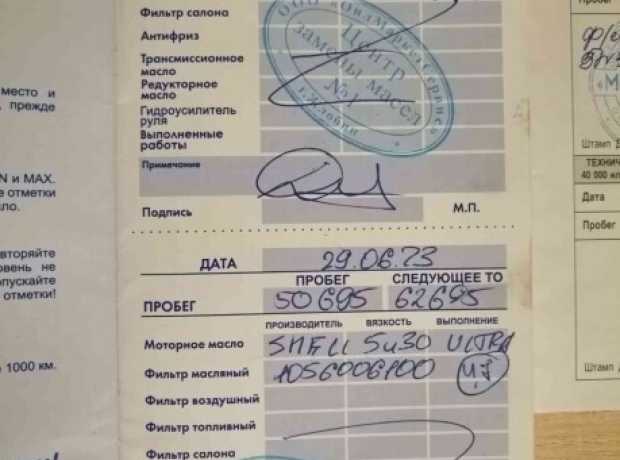 Фильтр салона
Антифриз
Трансмиссионное
масло
Редукторное
масло
Гидроусилитель
руля
Выполненные
работы
Примечание
Подпись
М.П.
Центр
замены масел
№1
ДАТА 29.06.23
ПРОБЕГ СЛЕДУЮЩЕЕ ТО
ПРОБЕГ 50695 62695
ПРОИЗВОДИТЕЛЬ ВЯЗКОСТЬ ВЫПОЛНЕНИЕ
Моторное масло SHELL 5w30 ULTRA
Фильтр масляный 1056006100
Фильтр воздушный
Фильтр топливный
Фильтр салона
место и
, прежде
N и MAX.
е отметки
сло.
вторяйте
овень не
опускайте
отметки!
1000 км.
Пробег
Штамп
ТЕХНИЧ
40 000 км
Дата
Пробег
Штамп